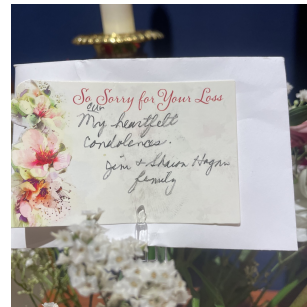 So Sorry for Your Loss
our
My heartfelt
condolences.
Jim & Sharon Hagan
family